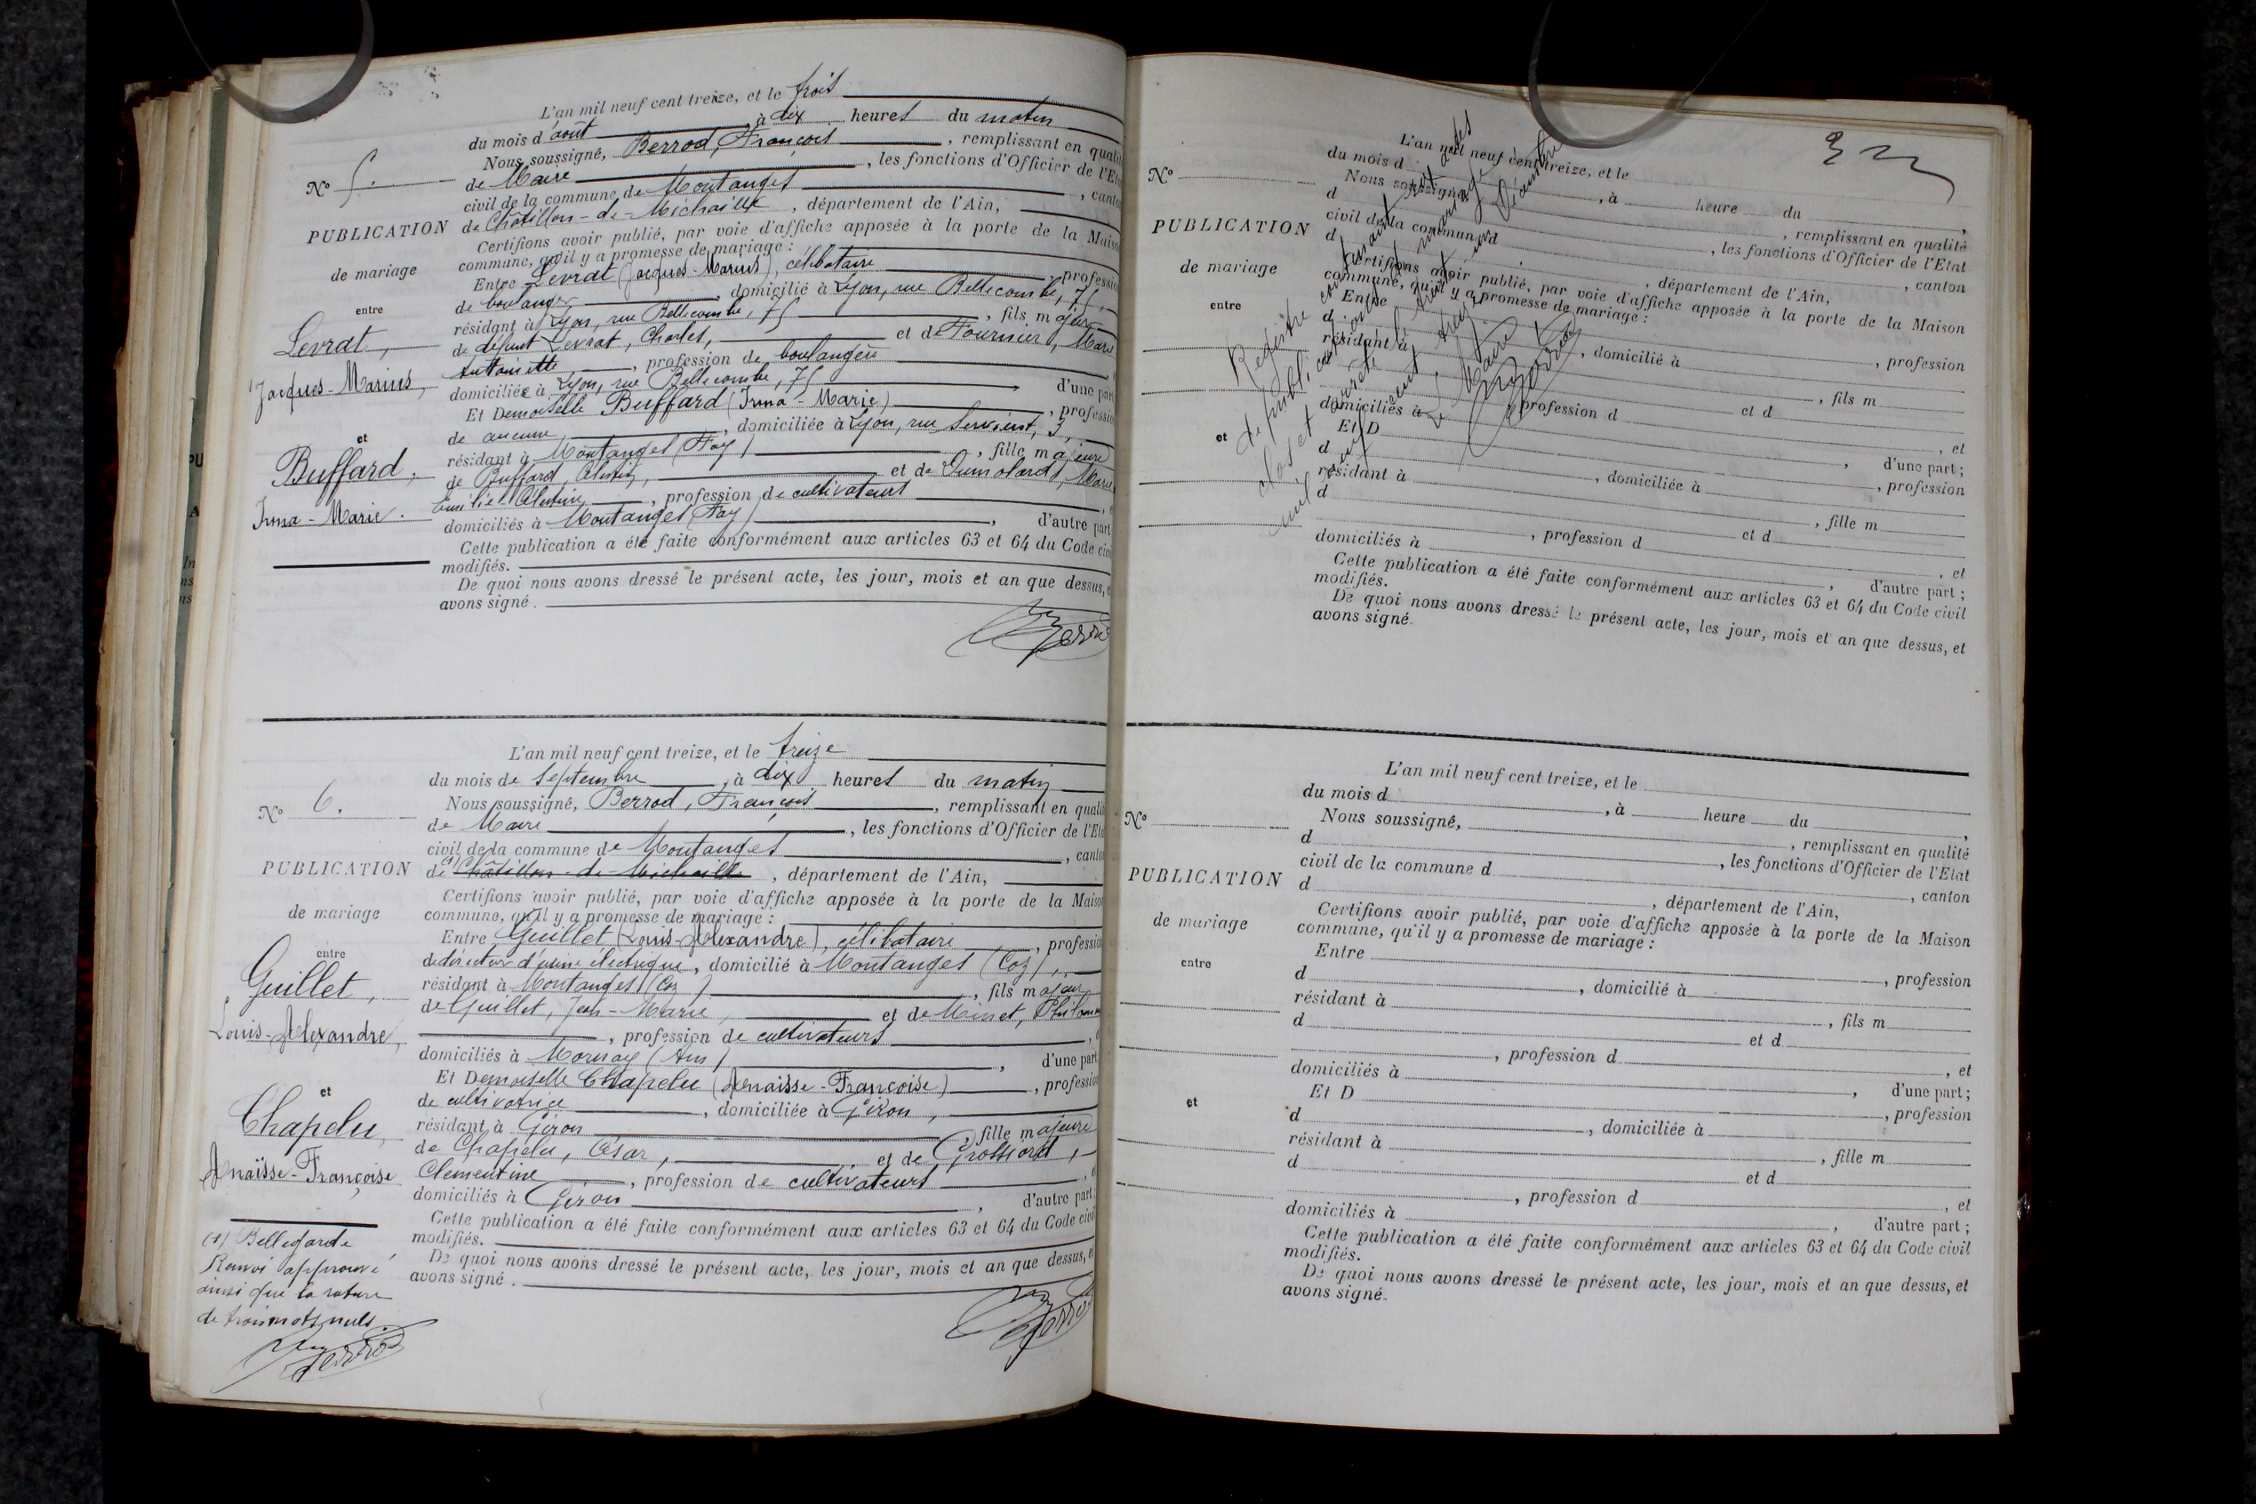 L'an mil neuf cent treize, et le trois
du mois d'août, à dix heures du matin
Nous soussigné, Berrod, François, remplissant en qualité
de Maire, les fonctions d'Officier de l'Etat
civil de la commune de Montanges, canton
de Châtillon-de-Michaille, département de l'Ain,
Certifions avoir publié, par voie d'affiche apposée à la porte de la Maison
commune, qu'il y a promesse de mariage :
Entre Levrat (Jacques-Marius), célibataire, profession
de boulanger, domicilié à Lyon, rue Bellecombe, 75,
résidant à Lyon, rue Bellecombe, 75, fils majeur
de défunt Levrat, Charles, et de Fournier, Marie
Antoinette, profession de boulangère
domiciliée à Lyon, rue Bellecombe, 75 d'une part
Et Demoiselle Buffard (Irma-Marie), profession
de aucune, domiciliée à Lyon, rue Servient, 3,
résidant à Montanges (Fay), fille majeure
de Buffard, et de Dumolard, Marie
profession de cultivateurs
domiciliés à Montanges (Fay), d'autre part
Cette publication a été faite conformément aux articles 63 et 64 du Code civil
modifiés.
De quoi nous avons dressé le présent acte, les jour, mois et an que dessus, et
avons signé.
Berrod
N° 5.
PUBLICATION
de mariage
entre
Levrat,
Jacques-Marius,
et
Buffard,
Irma-Marie.
L'an mil neuf cent treize, et le treize
du mois de septembre, à dix heures du matin
Nous soussigné, Berrod, François, remplissant en qualité
de Maire, les fonctions d'Officier de l'Etat
civil de la commune de Montanges, canton
de (1) Châtillon-de-Michaille, département de l'Ain,
Certifions avoir publié, par voie d'affiche apposée à la porte de la Maison
commune, qu'il y a promesse de mariage :
Entre Guillet (Louis-Alexandre), célibataire, profession
de directeur d'usine électrique, domicilié à Montanges (Coz),
résidant à Montanges (Coz), fils majeur
de Guillet, Jean-Marie, et de Minet,
, profession de cultivateurs
domiciliés à Mornay (Ain), d'une part
Et Demoiselle Chapelu (Anaïsse-Françoise), profession
de cultivatrice, domiciliée à Giron,
résidant à Giron, fille majeure
de Chapelu, César, et de Grossiord,
Clementine, profession de cultivateurs
domiciliés à Giron, d'autre part
Cette publication a été faite conformément aux articles 63 et 64 du Code civil
modifiés.
De quoi nous avons dressé le présent acte, les jour, mois et an que dessus, et
avons signé.
Berrod
N° 6.
PUBLICATION
de mariage
entre
Guillet,
Louis-Alexandre,
et
Chapelu,
Anaïsse-Françoise
(1) Bellegarde
Renvoi approuvé
ainsi que la rature
de trois mots nuls.
Berrod
L'an mil neuf cent treize, et le
du mois d, à heure du,
Nous soussigné, remplissant en qualité
d, les fonctions d'Officier de l'Etat
civil de la commune d, canton
d, département de l'Ain,
Certifions avoir publié, par voie d'affiche apposée à la porte de la Maison
commune, qu'il y a promesse de mariage :
Entre, profession
d, domicilié à
résidant à, fils m
d et d
, profession d, et
domiciliés à, d'une part ;
Et D, profession
d, domiciliée à
résidant à, fille m
d et d
, profession d, et
domiciliés à, d'autre part ;
Cette publication a été faite conformément aux articles 63 et 64 du Code civil
modifiés.
De quoi nous avons dressé le présent acte, les jour, mois et an que dessus, et
avons signé.
N°
PUBLICATION
de mariage
entre
et
Registre
de publications de mariage
clos et arrêté le trente un Décembre
mil neuf cent treize
Le Maire
Berrod
L'an mil neuf cent treize, et le
du mois d, à heure du,
Nous soussigné, remplissant en qualité
d, les fonctions d'Officier de l'Etat
civil de la commune d, canton
d, département de l'Ain,
Certifions avoir publié, par voie d'affiche apposée à la porte de la Maison
commune, qu'il y a promesse de mariage :
Entre, profession
d, domicilié à
résidant à, fils m
d et d
, profession d, et
domiciliés à, d'une part ;
Et D, profession
d, domiciliée à
résidant à, fille m
d et d
, profession d, et
domiciliés à, d'autre part ;
Cette publication a été faite conformément aux articles 63 et 64 du Code civil
modifiés.
De quoi nous avons dressé le présent acte, les jour, mois et an que dessus, et
avons signé.
N°
PUBLICATION
de mariage
entre
et